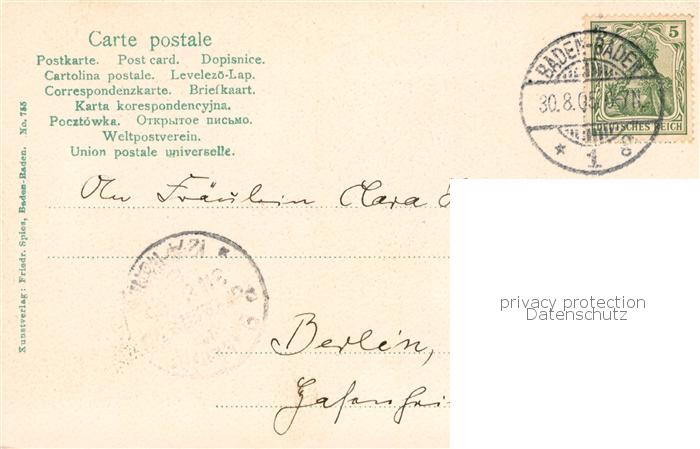 Carte postale
Postkarte. Post card. Dopisnice.
Cartolina postale. Levelező-Lap.
Correspondenzkarte. Briefkaart.
Karta korespondencyjna.
Pocztówka. Открытое письмо.
Weltpostverein.
Union postale universelle.
Kunstverlag: Friedr. Spies, Baden-Baden. No. 755
5
DEUTSCHES REICH
BADEN-BADEN
30.8.05
* 1
An Fräulein Clara
Berlin,
privacy protection
Datenschutz